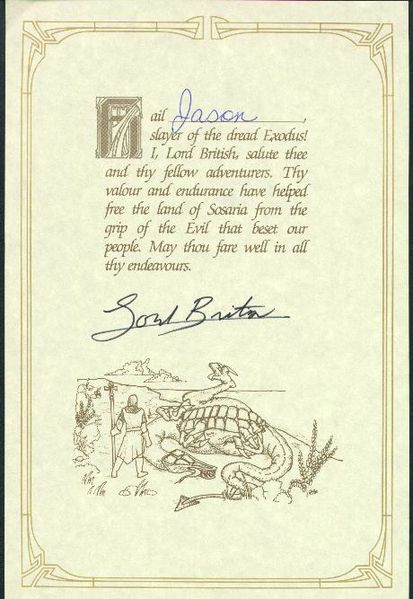 Hail Jason,
slayer of the dread Exodus!
I, Lord British, salute thee
and thy fellow adventurers. Thy
valour and endurance have helped
free the land of Sosaria from the
grip of the Evil that beset our
people. May thou fare well in all
thy endeavours.
Lord British